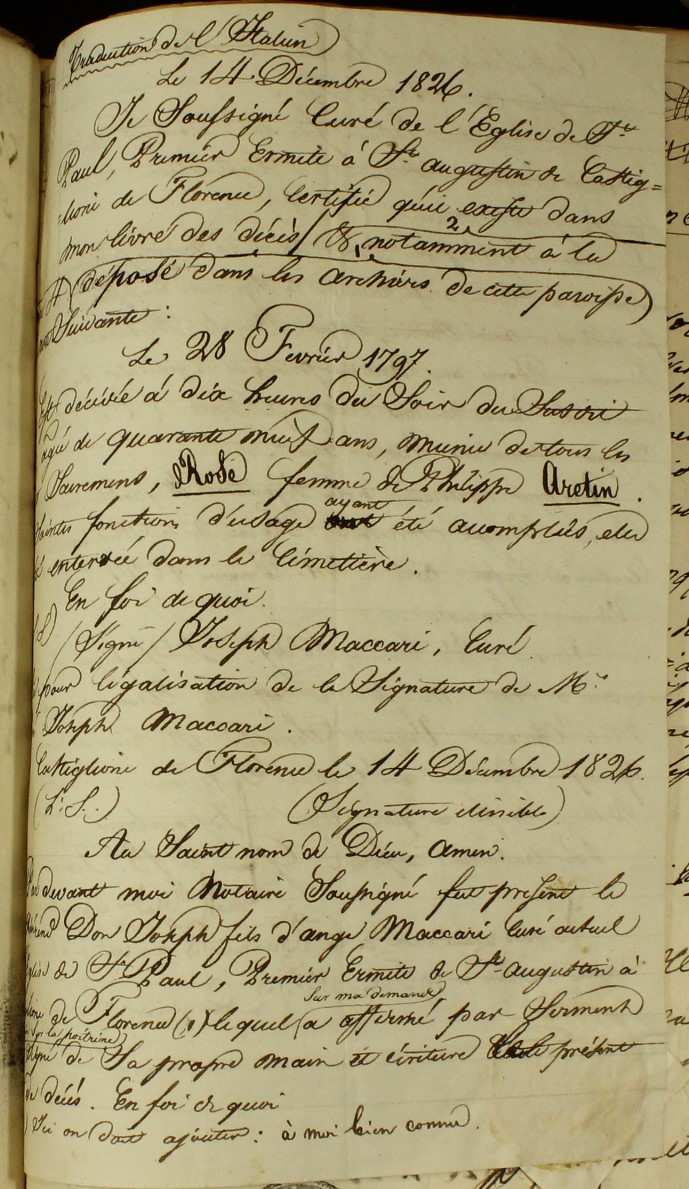 Traduction de l'Italien
Le 14 Décembre 1826.
Je Soussigné Curé de l'Église de St
Paul, Premier Ermite à St. augustin de Castig=
=lioni de Florence, Certifie qu'il existe dans
mon livre des décès / & notamment à la 2
(déposé dans les archives de cette paroisse)
Suivante :
Le 28 Fevrier 1797.
Est décédée à dix heures du Soir du
agée de quarante neuf ans, munie de tous les
Sacremens, Rose femme de Philippe Aretin.
Saintes fonctions d'usage ayant été accomplies, elle
enterrée dans le Cimetière.
En foi de quoi.
/Signé/ Joseph Maccari, Curé
pour légalisation de la Signature de Mr.
Joseph Maccari.
Castiglione de Florence le 14 Décembre 1826.
(L. S.) (Signature illisible)
Au Saint nom de Dieu, amen.
Par devant moi Notaire Soussigné fut présent le
Don Joseph fils d'ange Maccari Curé actuel
Église de St. Paul, Premier Ermite de St. augustin à
de Florence (1) lequel (a affirmé par Serment
Sur ma demande
la poitrine)
signé de Sa propre main et écriture présent
de décès. En foi de quoi
Ici on doit ajouter : à moi bien connu.